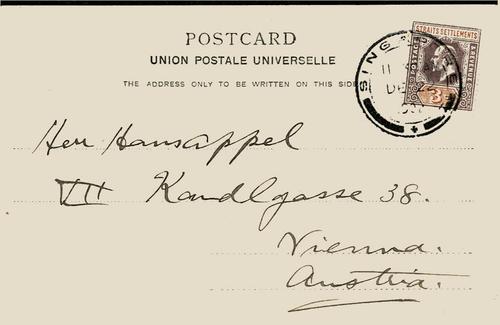 POSTCARD
UNION POSTALE UNIVERSELLE
THE ADDRESS ONLY TO BE WRITTEN ON THIS SIDE
STRAITS SETTLEMENTS
POSTAGE & REVENUE
3
SINGAPORE
DE
Herr Hans Appel
VII Kandlgasse 38.
Vienna.
Austria.